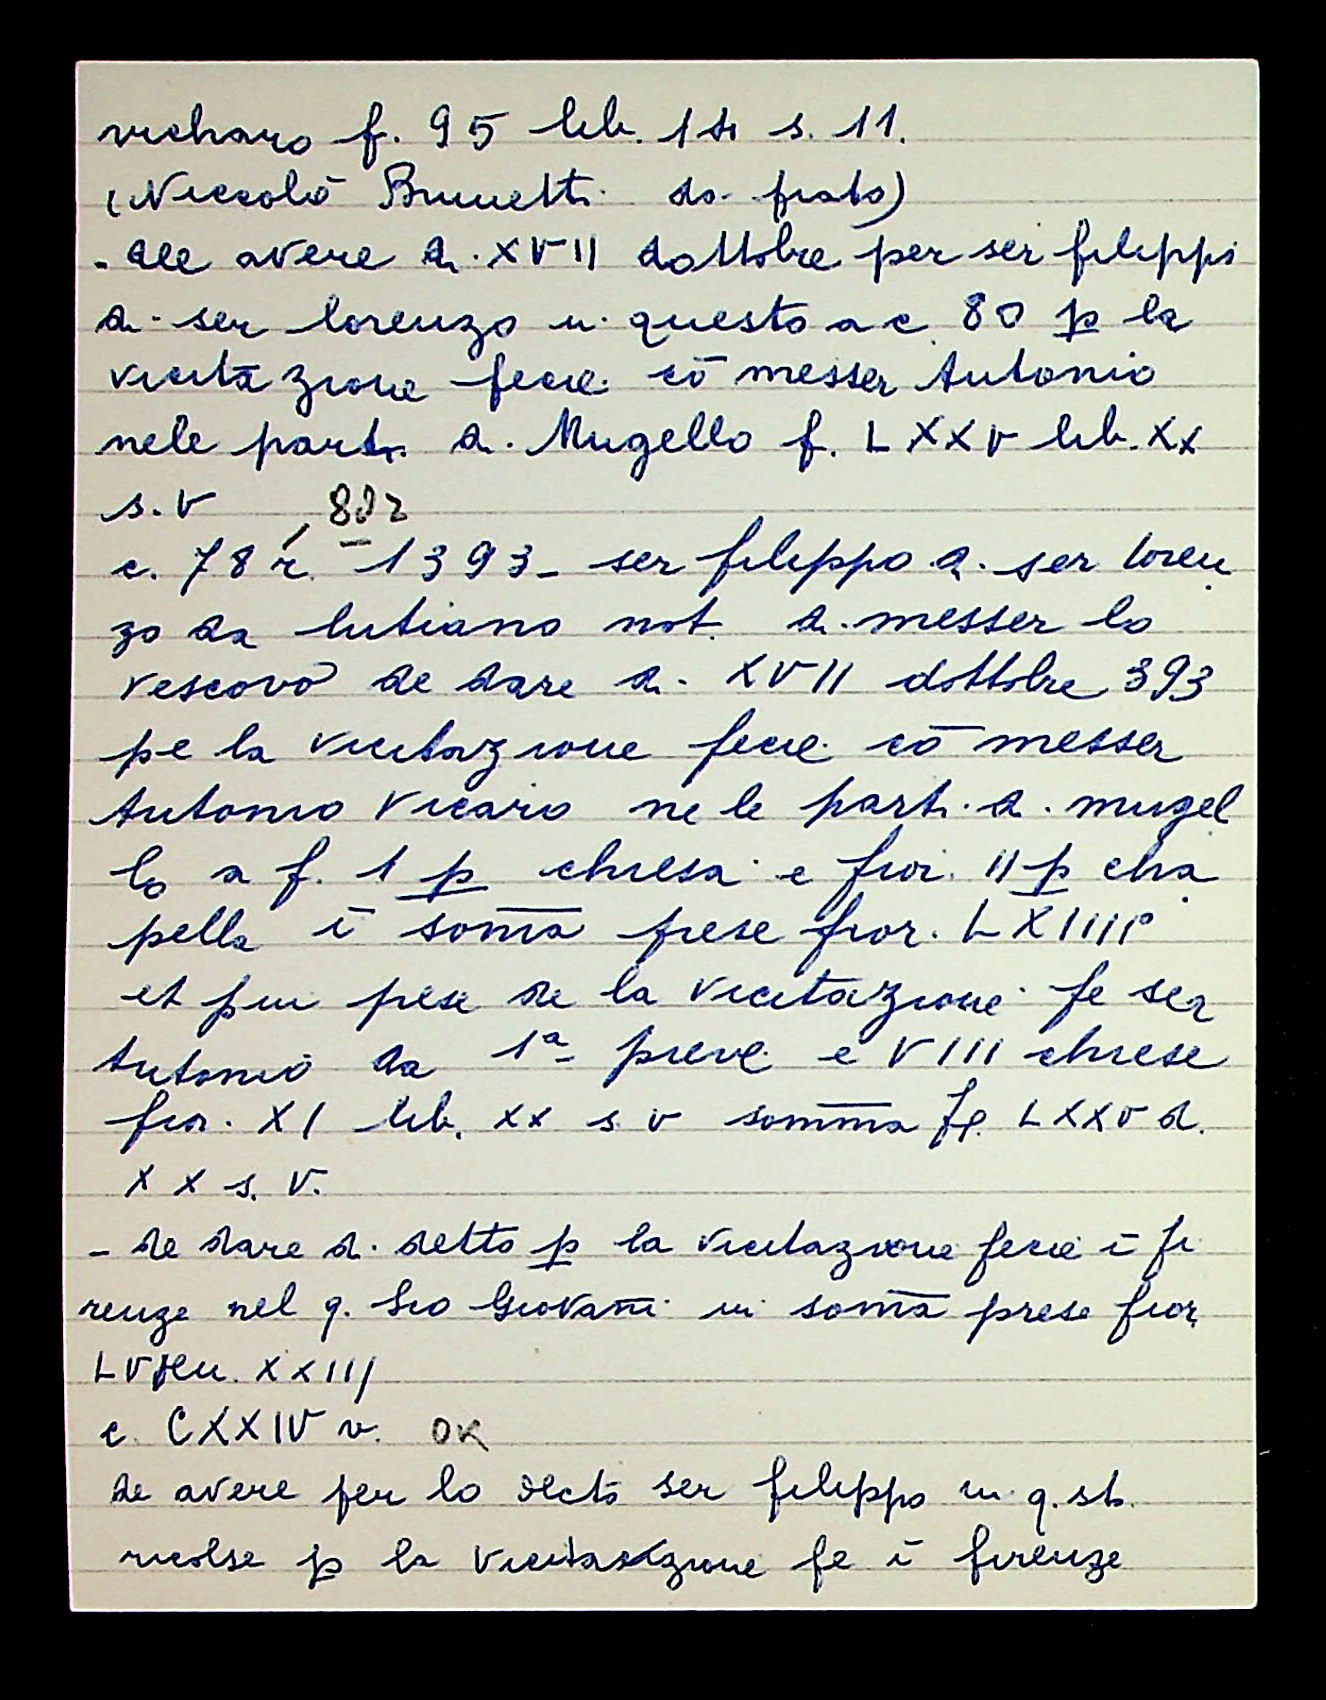 vichario f. 95 lib. 14 s. 11.
(Niccolò Brunetti da prato)
- dee avere di XVII dottobre per ser filippi
di ser lorenzo in questo a c. 80 p la
vicitazione fecie cō messer Antonio
nele parti di Mugello f. LXXV lib. XX
s. V 80r
c. 78 r. 1393 - ser filippo di ser loren
zo da lutiano not. di messer lo
vescovo de dare di XVII dottobre 393
pe la vicitazione fecie cō messer
Antonio vicario ne le parti di mugel
lo a f. 1 p chiesa e fior. II p cha
pella ī somma prese fior. LXIIII°
et piu prese de la vicitazione fe ser
Antonio da 1a pieve e VIII chiese
fior. XI lib. XX s V somma f. LXXV d.
XX s. V.
- de dare di detto p la vicitazione fecie ī fi
renze nel q. Sco Giovanni in somma prese fior
LV XXIII
c. CXXIV v. OK
de avere per lo decto ser filippo in q. sto
ricolse p la vicitazione fe ī firenze